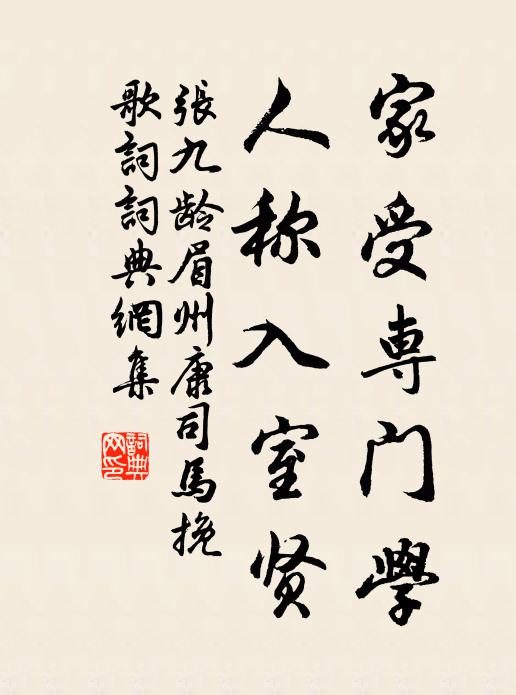 家受専门學
人称入室贤
張九龄眉州康司馬挽
歌詞詞典網集
詞典
网印